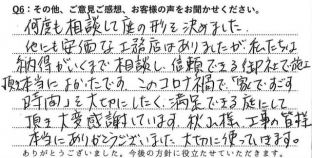 Q6：その他、ご意見ご感想、お客様の声をお聞かせください。
何度も相談して庭の形を決めました。
他にも安価な工務店はありましたが私たちは
納得がいくまで相談し、信頼できる御社で施工
頂き本当によかったです。このコロナ禍で、"家ですごす
時間"を大切にしたく、満足できる庭にして
頂き大変感謝しています。秋山様、工事の皆様
本当にありがとうございました。大切に使っていきます。
ありがとうございました。今後の方針に役立たせていただきます。